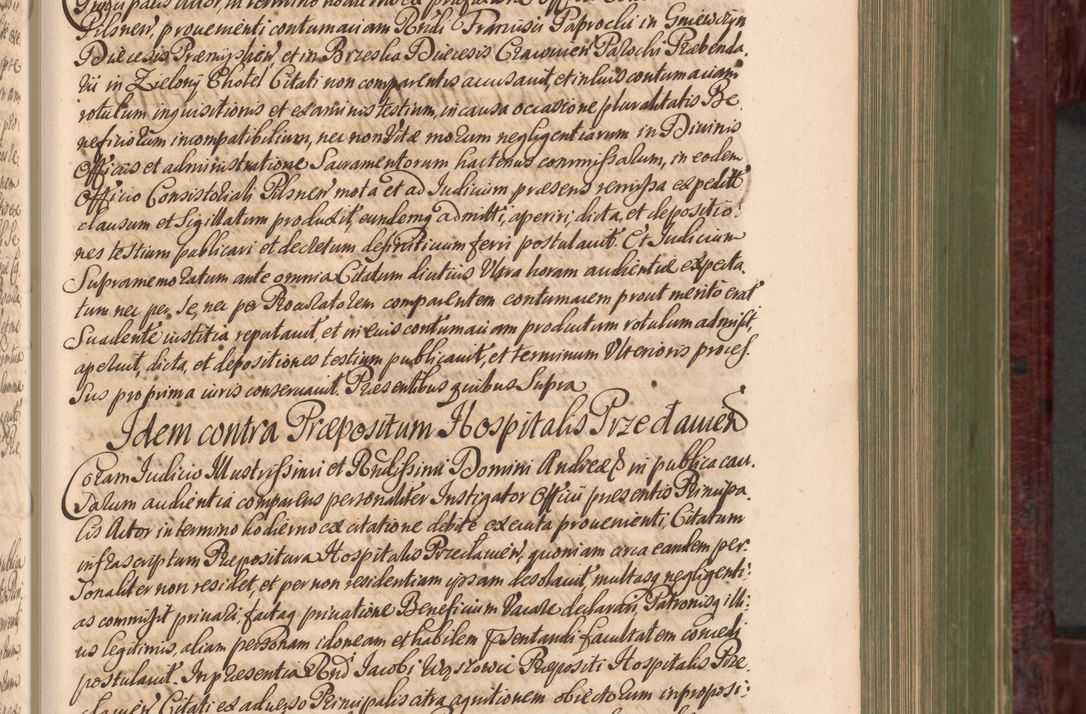 Pilsnen, prouenienti contumaciam Rndi Francisci Paprocki in Gniewczyn
Diœcesis Præmyslien, et in Brzeskа Diœcesis Cracouien Parochi Præbenda
rii in Zielony Chotel Citati non comparentis accusauit, et in eius contumaciam
rotulum inquisitionis et examinis testium, in causa occasione pluralitatis Be
neficiorum incompatibilium, nec non Vitæ morum negligentiarum in Diuinis
Officiis et administratione Sacramentorum hactenus commissarum, in eodem
Officio Consistoriali Pilsnen mota et ad Iudicium præsens remissa expedite
clausum et sigillatum produxit, eundemq admitti, aperiri, dicta, et depositio:
nes testium publicari et decretum definitiuum ferri postulauit. Et Iudicium
Supramemoratum ante omnia Citatum diutius Vltra horam audientiæ expecta
tum nec per se, nec per Procuratorem comparentem contumacem prout merito erat
Suadente iustitia reputauit, et in eius contumaciam productum rotulum admisit,
aperuit, dicta, et depositiones testium publicauit, et terminum Vlterioris proces
sus pro prima iuris conseruauit. Præsentibus quibus Supra
Idem contra Præpositum Hospitalis Przecłauien
Coram Iudicio Illustrissimi et Rndissimi Domini Andreæ in publica cau
sarum audientia comparens personaliter Instigator Officii præsentis Principa
lis Actor in termino hodierno ex citatione debite executa prouenienti, Citatum
infrascriptum Præpositum Hospitalis Przecłauien, quoniam circa eandem per
sonaliter non residet, et per non residentiam ipsam desolauit, multasq negligenti:
as commisit priuari, factaq priuatione Beneficium Vacare declarari, Patronisq illi:
us legitimis, aliam personam idoneam et habilem præsentandi facultatem concedi
postulauit. In præsentia Rnd Iacobi Præpositi Hospitalis Prze
clauien Citati ex aduerso Principalis citra agnitionem obiectorum in proposi: